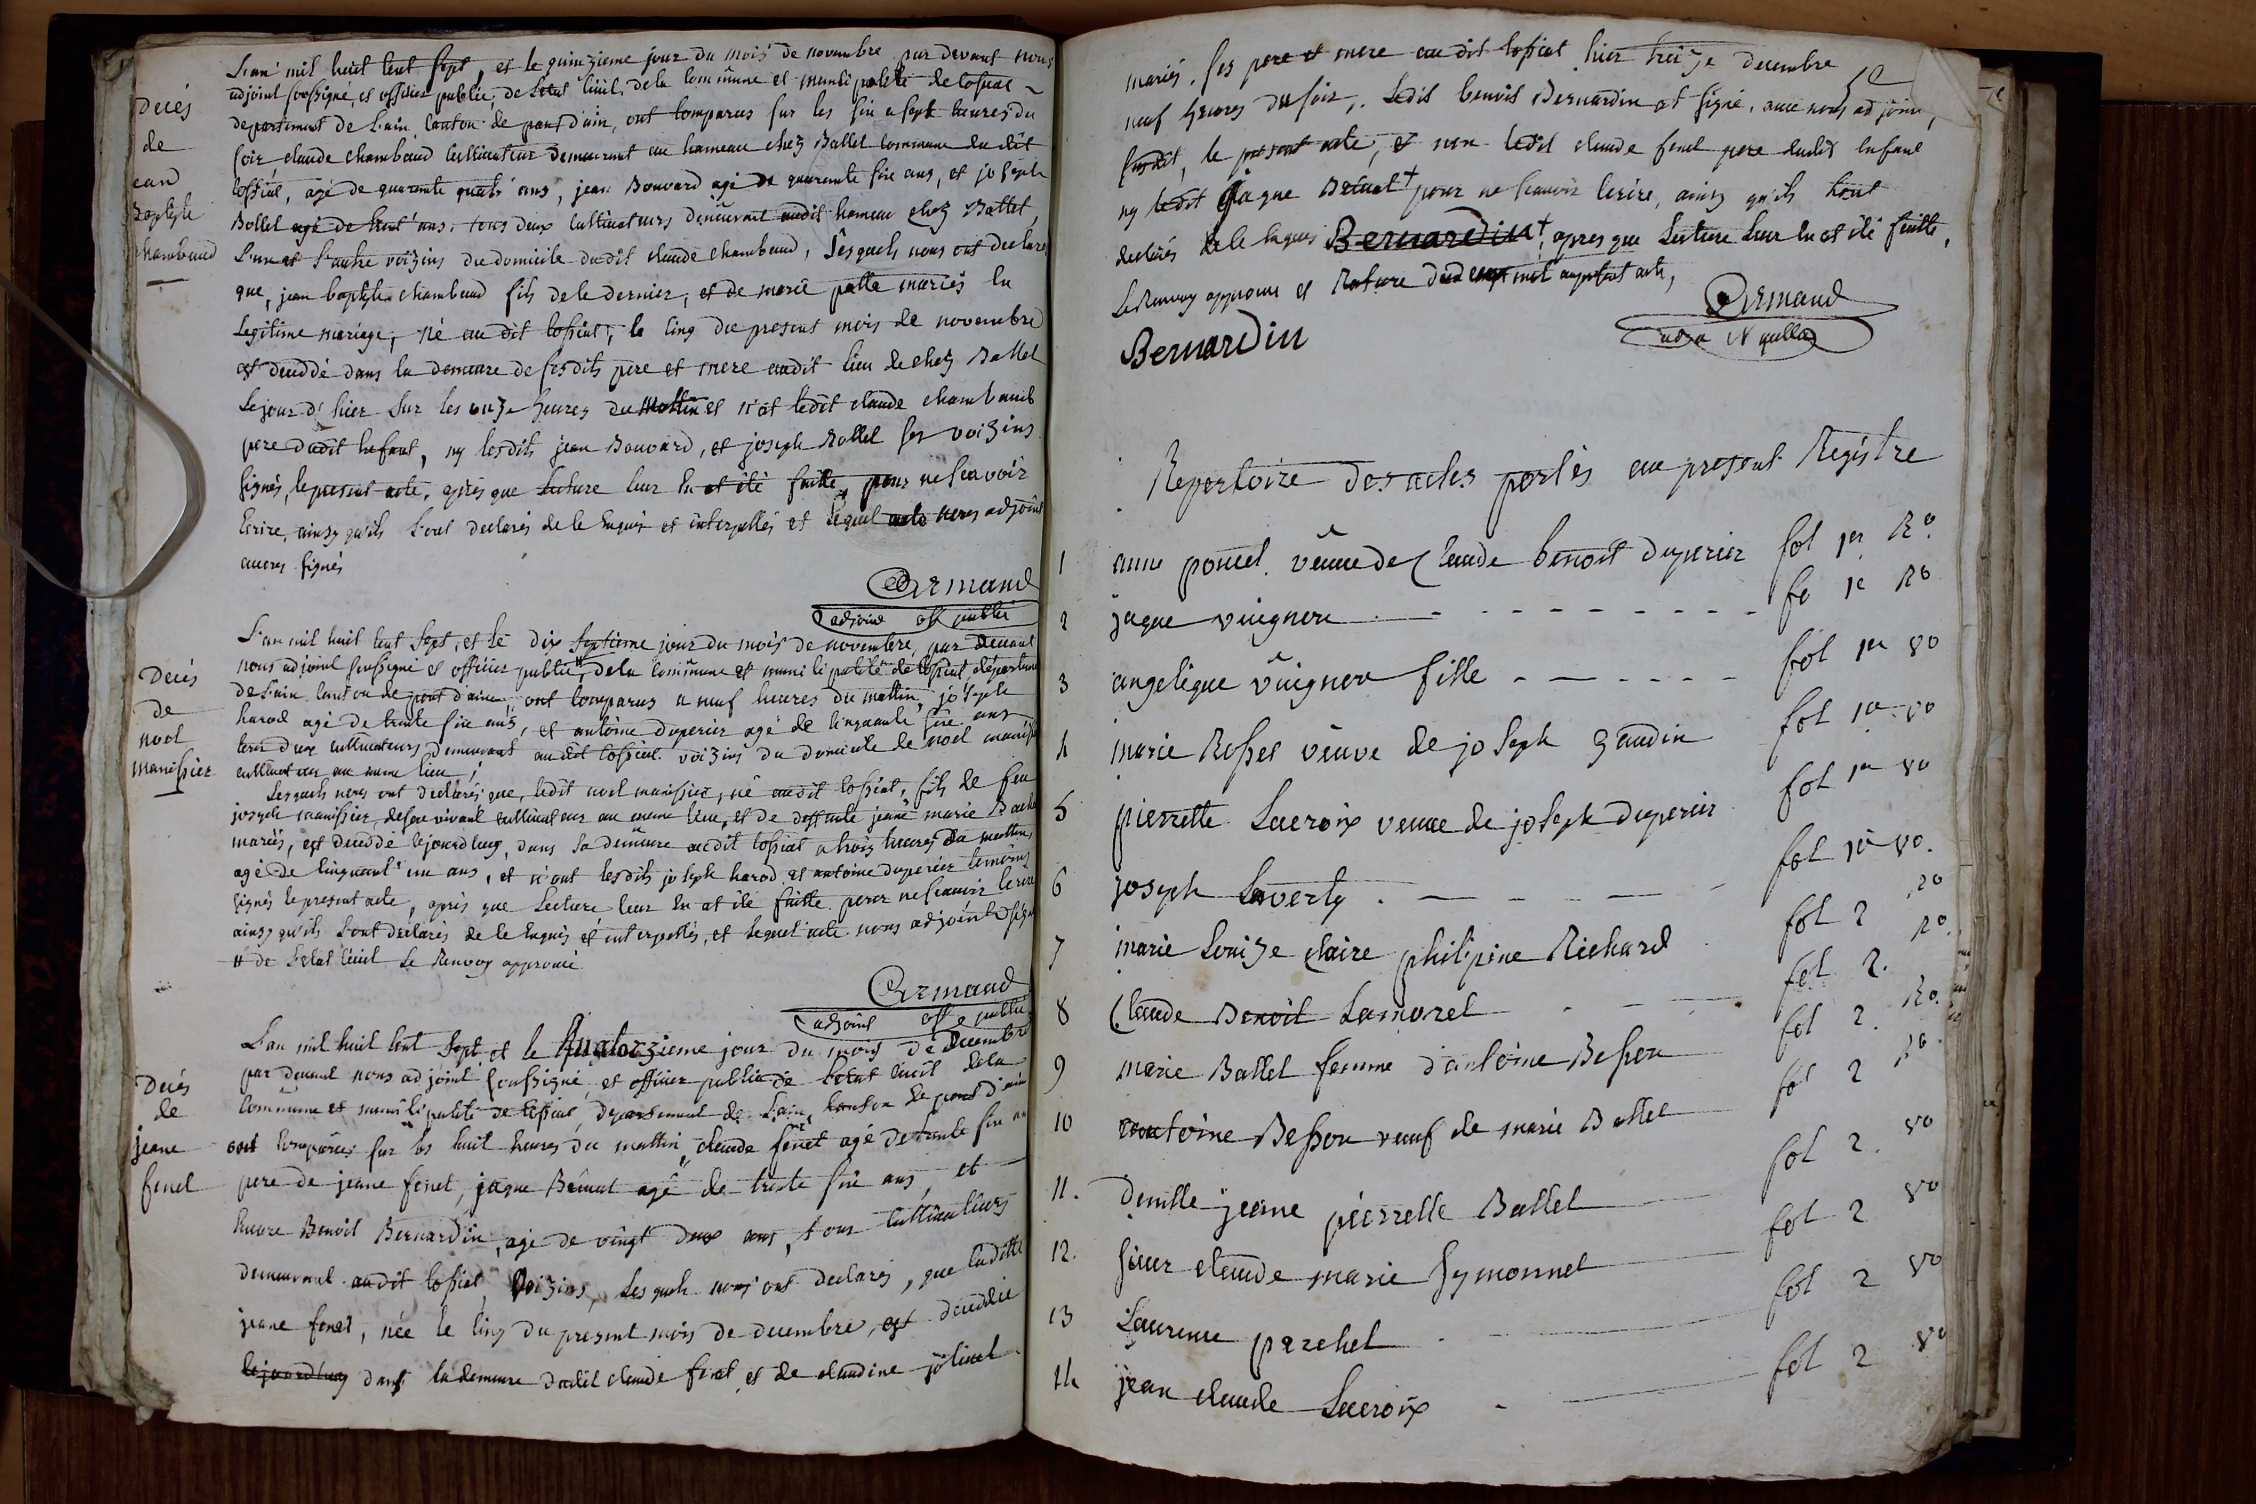 L'an mil huit cent sept, et le quinzieme jour du mois de novembre par devant nous
adjoint soussigné, et officier public, de l'etat civil, de la commune et municipalité de tossiat
departement de l'ain canton de pont d'ain, ont comparus sur les six a sept heures du
soir claude chambaud cultivateur demeurant au hameau chez Ballet commune du dit
tossiat, agé de quarante quatr' ans, jean Bouvard agé de quarante six ans, et joseph
Bollet agé de trent' ans, tous deux cultivateurs demeurant audit hameau chez Ballet,
l'un et l'autre voizins du domicile du dit claude chambaud, Lesquels nous ont declaré
que, jean baptiste chambaud fils de le dernier, et de marie palle mariés en
Legitime mariage, né au dit tossiat, le cinq du present mois de novembre
est deceddé dans la demeure de ses dits pere et mere audit lieu de chez Ballet
Le jour d'hier sur les onze heures du mattin et n'at ledit claude chambaud
pere dudit enfant, ny lesdits jean Bouvard, et joseph Bollet ses voizins
signés, le present acte, après que lecture leur en at été faitte, pour ne scavoir
Ecrire, ainsy qu'ils l'ont declarés de le Enquis et interpellés et lequel acte nous adjoint
avons signés
Armand
adjoint off public
Decés
de
ean
Baptiste
chambaud
L'an mil huit cent sept, et le dix septieme jour du mois de novembre, par devant
nous adjoint soussigné et officier public, # de la commune et municipalité de tossiat departement
de l'ain canton de pont d'ain, ont comparus a neuf heures du mattin, joseph
harod agé de trante six ans, et antoine duperier agé de cinquante six ans
tous deux cultivateurs demeurant audit tossiat voizins du domicile de noel manissier
cultivateur au meme lieu,
Lesquels nous ont declarés que, ledit noel manissier, né audit tossiat, fils de feu
joseph manissier, de son vivant cultivateur au meme lieu, et de deffunte jeane marie
mariés, est deceddé le jourd'huy, dans sa demeure audit tossiat a trois heures du mattin,
agé de cinquant' un ans, et n'ont lesdits joseph harod, et antoine duperier temoins
signés le present acte, après que Lecture leur en at été faitte pour ne scavoir Ecrire
ainsy qu'ils l'ont declarés de le Enquis et interpellés, et lequel acte nous adjoint signé
# de l'etat civil Le Renvoy approuvé
Armand
adjoint off public
Decés
de
noel
manissier
L'an mil huit cent sept, et le Quatorzieme jour du mois de decembre
par devant nous adjoint soussigné, et officier public de l'etat civil de la
commune et municipalité de tossiat, departement de l'ain, canton de pont d'ain
ont comparus sur les huit heures du mattin, claude fenet agé de trante six ans
pere de jeane fenet, jaque Brunat agé de trente six ans, et
Encore Benoit Bernardin, agé de vingt deux ans, tous cultivateurs
demeurant audit tossiat, Voizins, Lesquels nous ont declarés, que laditte
jeane fenet, née le cinq du present mois de decembre, est deceddée
le jourd'huy dans la demeure dudit claude fenet et de claudine jolinet
Decés
de
jeane
fenet
mariés, ses pere et mere au dit tossiat hier treize decembre
neuf heures du soir, Ledit benoit Bernardin at signé, avec nous adjoint,
susdit, le present acte, et non ledit claude fenet pere dudit Enfant
ny ledit jaque Brunat + pour ne scavoir Ecrire, ainsy qu'ils l'ont
declarés de le Enquis Bernardin +, apres que Lecture Leur en at été faitte,
Le Renvoy approuvé et Rature d'un mot au present acte,
Bernardin
Armand
Repertoire des actes portés au present Registre
1 anne poncet veuve de Claude benoit duperier fol 1er Ro
2 jaque vuignon - - - - - - - - fo 1e Ro
3 angelique vuignon fille - - - - - - fol 1er Vo
4 marie Rosset veuve de joseph gaudin fol 1er Vo
5 pierrette Lacroix veuve de joseph duperier fol 1er Vo
6 joseph Laverty - - - - fol 1er Vo.
7 marie Louize claire philipine Richard fol 2 Ro
8 Claude Benoit Lamorel - - - fol 2. Ro.
9 marie Ballet femme d'antoine Besson fol 2. Ro.
10 antoine Besson veuf de marie Ballet fol 2 Ro.
11. Demlle jeane pierrette Ballet fol 2. Vo
12. sieur claude marie symonnet fol 2 Vo
13 Laurence perchet fol 2 Vo
14 jean claude Lacroix - fol 2 Vo